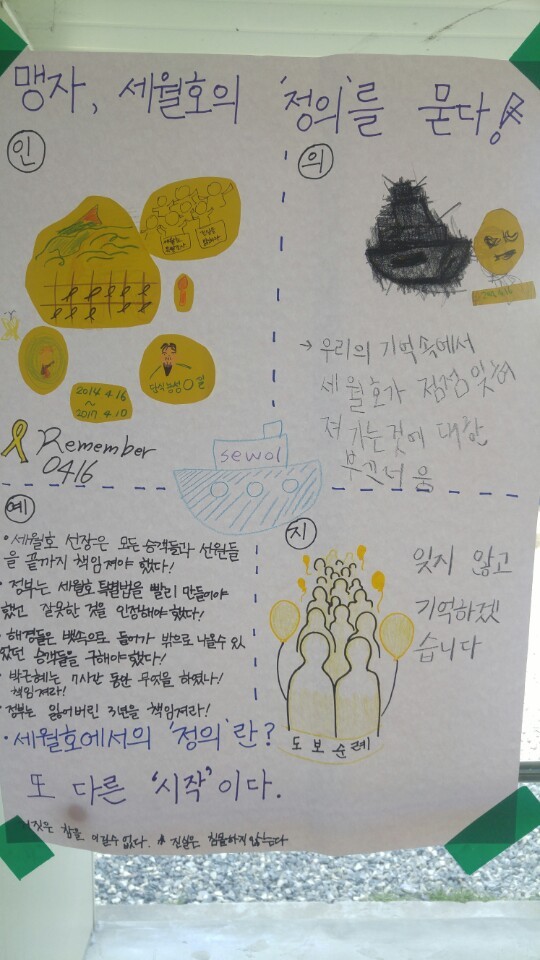 맹자, 세월호의 '정의'를 묻다!
인
의
단식농성 0일
2014 4.16
~
2017 4.10
Remember
0416
→ 우리의 기억속에서
세월호가 점점 잊혀
져 가는것에 대한
부끄러움
sewol
예
• 세월호 선장은 모든 승객들과 선원들
을 끝까지 책임져야 했다!
• 정부는 세월호 특별법을 빨리 만들어야
했고 잘못한 것을 인정해야 했다!
• 해경들은 뱃속으로 들어가 밖으로 나올수 있
었던 승객들을 구해야했다!
• 박근혜는 7시간 동안 무엇을 하였나!
책임져라!
• 정부는 잃어버린 3년을 책임져라!
지
잊지 않고
기억하겠
습니다
도보순례
• 세월호에서의 '정의'란?
또 다른 '시작'이다.
참을 이길수 없다. 진실은 침몰하지 않는다